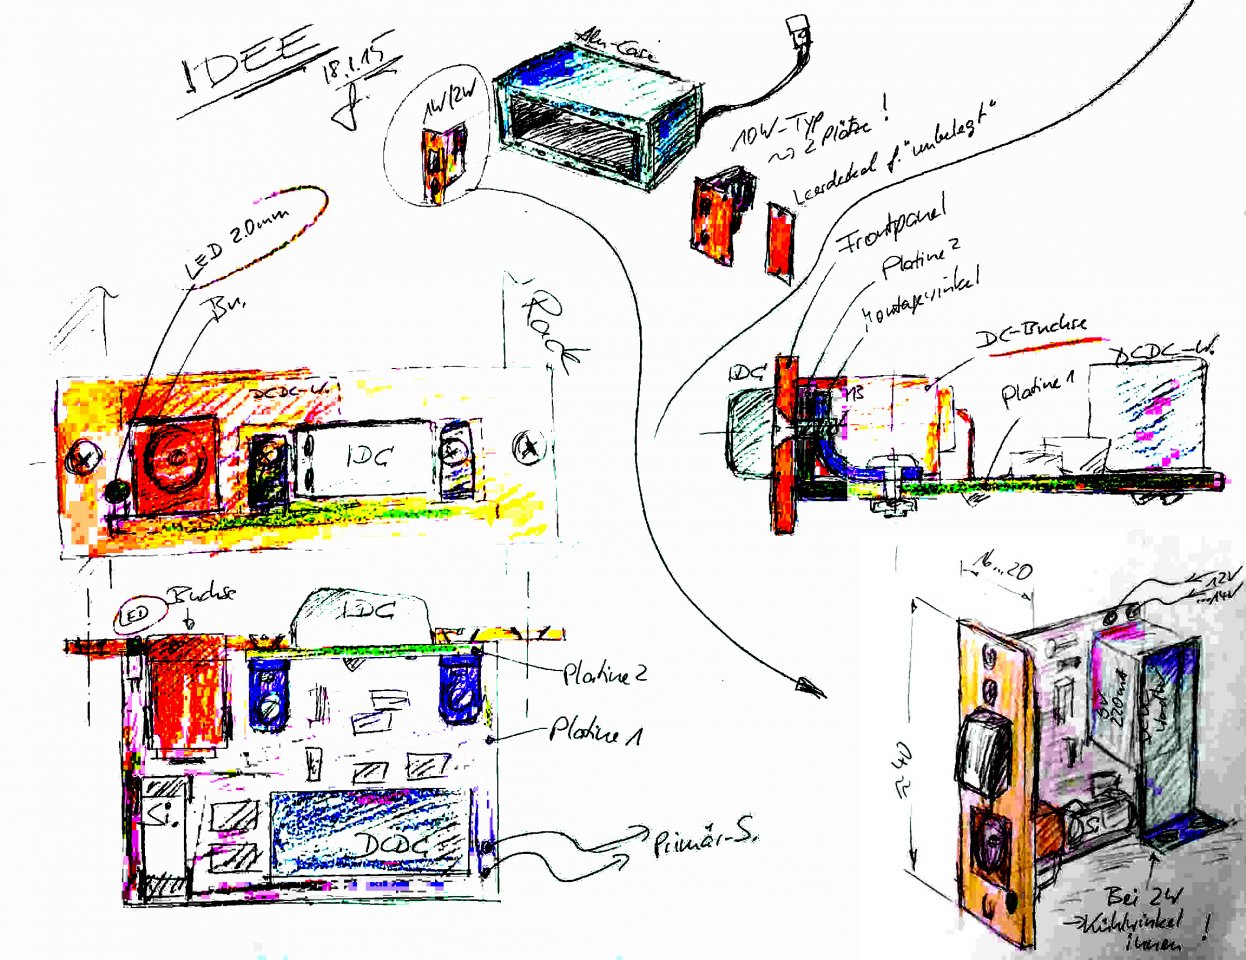 IDEE
18.1.15
Alu-Case
1W/2W
10W-Typ
~> 2 Plätze!
Leerdeckel f. "unbelegt"
LED 2.0mm
Bu.
Rack
Frontpanel
Platine 2
Montagewinkel
DC-Buchse
DCDC-W.
Platine 1
IDC
DCDC-W.
IDC
LED
Buchse
IDC
Platine 2
Platine 1
Si.
DCDC
Primär-S.
16...20
12V
...14V
≈ 40
5V
220mA
Si
Bei 2W
→ Kühlwinkel
innen !